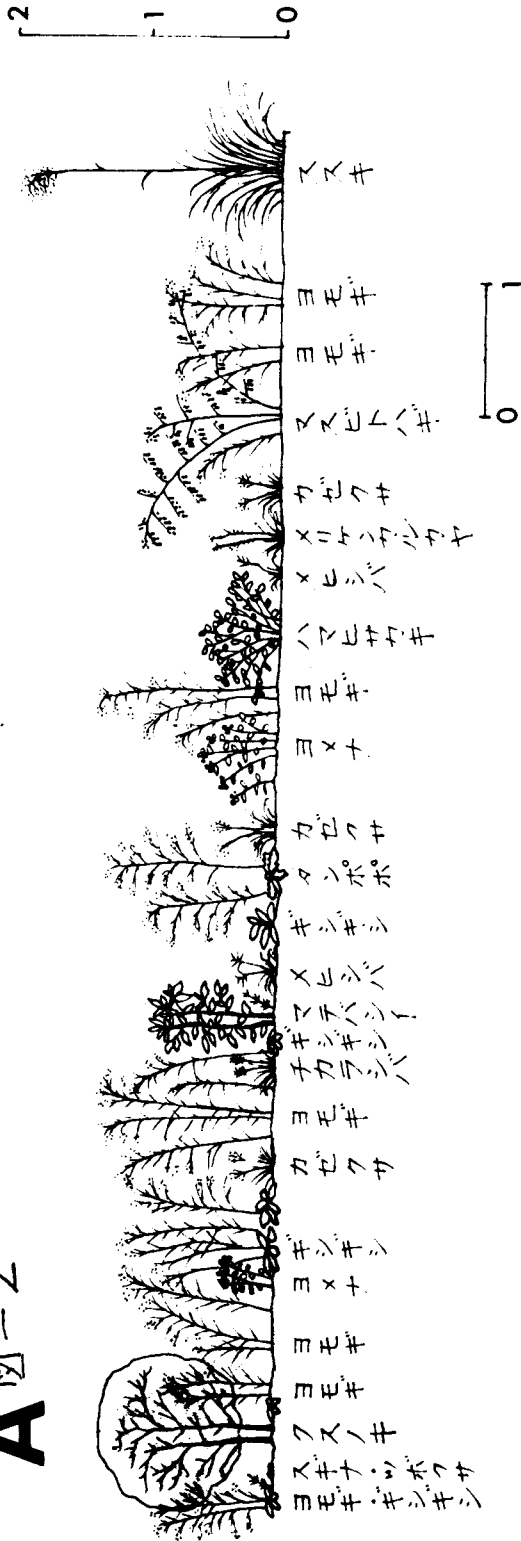 A 図-2
2
1
0
ヨモギ・ギシギシ
スギナ・ツボクサ
クスノキ
ヨモギ
ヨモギ
ヨメナ
ギシギシ
カゼクサ
ヨモギ
チカラシバ
ギシギシ
マテバシイ
メヒシバ
ギシギシ
タンポポ
カゼクサ
ヨメナ
ヨモギ
ハマヒサカキ
メヒシバ
メリケンカルカヤ
カゼクサ
ヌスビトハギ
ヨモギ
ヨモギ
ススキ
0 1